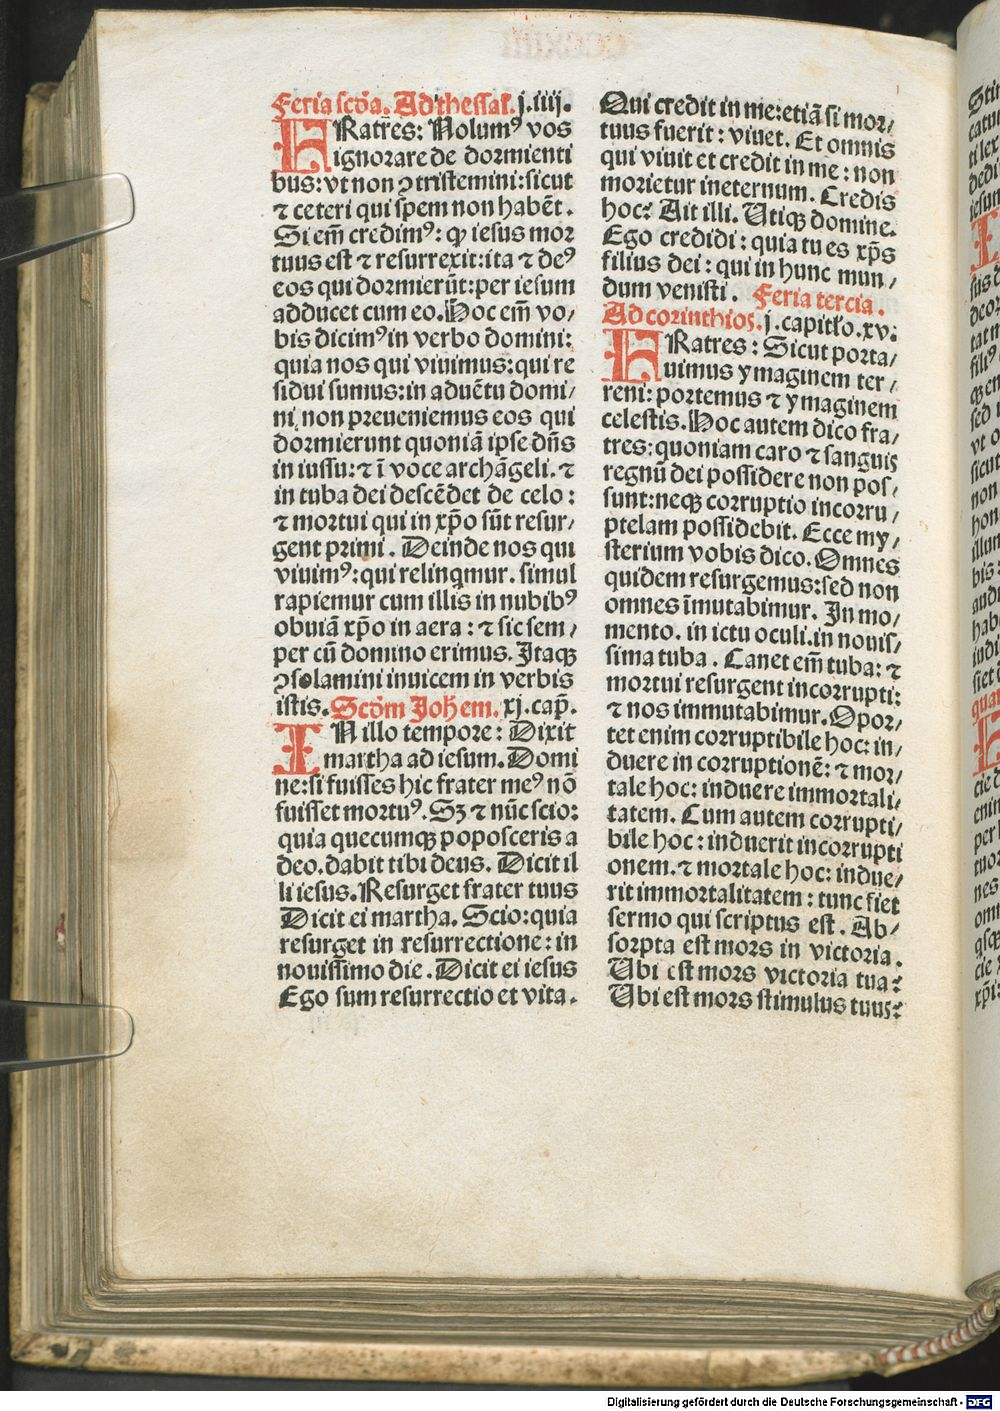 Feria scďa. Ad thessal̃. j. iiij.
FRatres̃: Nolumꝰ vos
ignorare de dormienti
bus: vt non ꝯtristemini: sicut
⁊ ceteri qui spem non habēt.
Si em̄ credimꝰ: ꝙ iesus mor
tuus est ⁊ resurrexit: ita ⁊ deꝰ
eos qui dormierūt: per iesum
adducet cum eo. Hoc em̄ vo/
bis dicimꝰ in verbo domini:
quia nos qui viuimus: qui re
sidui sumus: in aduētu domi/
ni, non preueniemus eos qui
dormierunt quoniā ipse dn̄s
in iussu: ⁊ ī voce archāgeli. ⁊
in tuba dei descēdet de celo:
⁊ mortui qui in xp̄o sūt resur/
gent primi. Deinde nos qui
viuimꝰ: qui relinqmur. simul
rapiemur cum illis in nubibꝰ
obuiā xp̄o in aera: ⁊ sic sem/
per cū domino erimus. Itaqꝫ
ꝯsolamini inuicem in verbis
istis. Scďm Joh̃em. xj. cap̄.
IN illo tempore: Dixit
martha ad iesum. Domi
ne: si fuisses hic frater meꝰ nō
fuisset mortuꝰ. Sꝫ ⁊ nūc scio:
quia quecumqꝫ poposceris a
deo. dabit tibi deus. Dicit il
li iesus. Resurget frater tuus
Dicit ei martha. Scio: quia
resurget in resurrectione: in
nouissimo die. Dicit ei iesus
Ego sum resurrectio et vita.
Qui credit in me: etiā si mor/
tuus fuerit: viuet. Et omnis
qui viuit et credit in me: non
morietur in eternum. Credis
hoc? Ait illi. Utiqꝫ domine.
Ego credidi: quia tu es xp̄s
filius dei: qui in hunc mun/
dum venisti. Feria tercia.
Ad corinthios. j. capitło. xv:
FRatres: Sicut porta/
uimus ymaginem ter/
reni: portemus ⁊ ymaginem
celestis. Hoc autem dico fra/
tres: quoniam caro ⁊ sanguis
regnū dei possidere non pos/
sunt: neqꝫ corruptio incorru/
ptelam possidebit. Ecce my/
sterium vobis dico. Omnes
quidem resurgemus: sed non
omnes īmutabimur. In mo/
mento. in ictu oculi. in nouis/
sima tuba. Canet em̄ tuba: ⁊
mortui resurgent incorrupti:
⁊ nos immutabimur. Opor/
tet enim corruptibile hoc: in/
duere in corruptionē: ⁊ mor/
tale hoc: induere immortali/
tatem. Cum autem corrupti/
bile hoc: induerit incorrupti
onem. ⁊ mortale hoc: indue/
rit immortalitatem: tunc fiet
sermo qui scriptus est. Ab/
sorpta est mors in victoria.
Ubi est mors victoria tua?
Ubi est mors stimulus tuus?
Digitalisierung gefördert durch die Deutsche Forschungsgemeinschaft - DFG